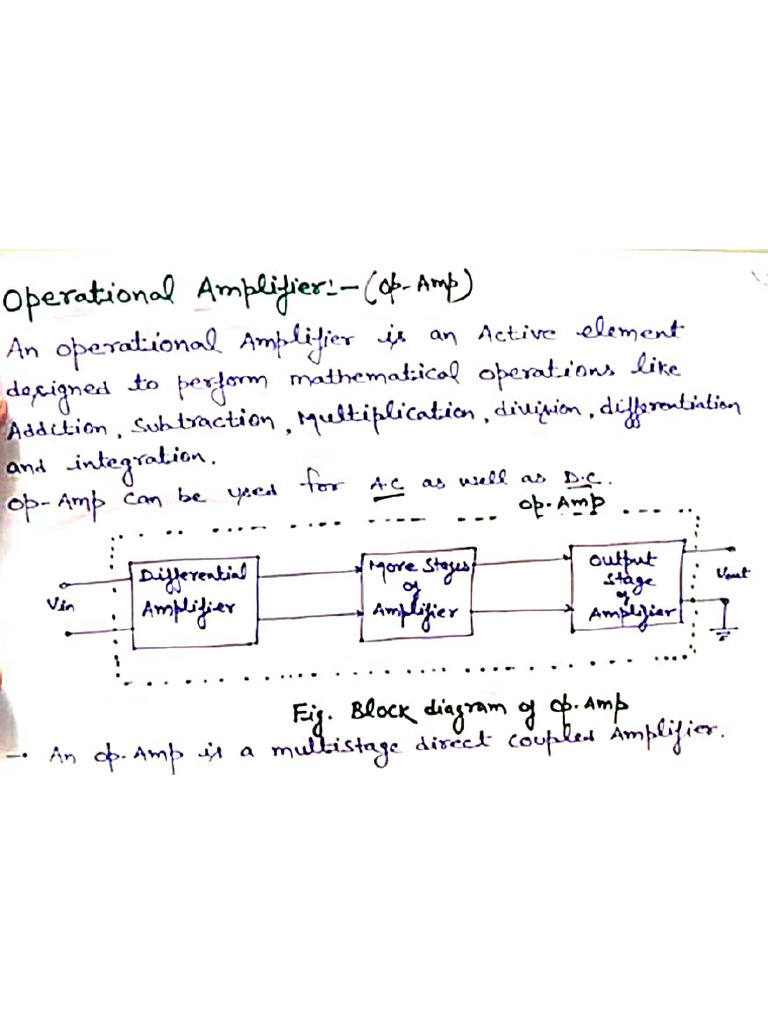 Operational Amplifier:-(Op-Amp)
An operational Amplifier is an Active element
designed to perform mathematical operations like
Addition, Subtraction, Multiplication, division, differentiation
and integration.
Op-Amp can be used for A.C as well as D.C.
Op-Amp
Differential
Amplifier
More Stages
of
Amplifier
Output
Stage
of
Amplifier
Vin
Vout
Fig. Block diagram of Op.Amp
-. An Op-Amp is a multistage direct coupled Amplifier.